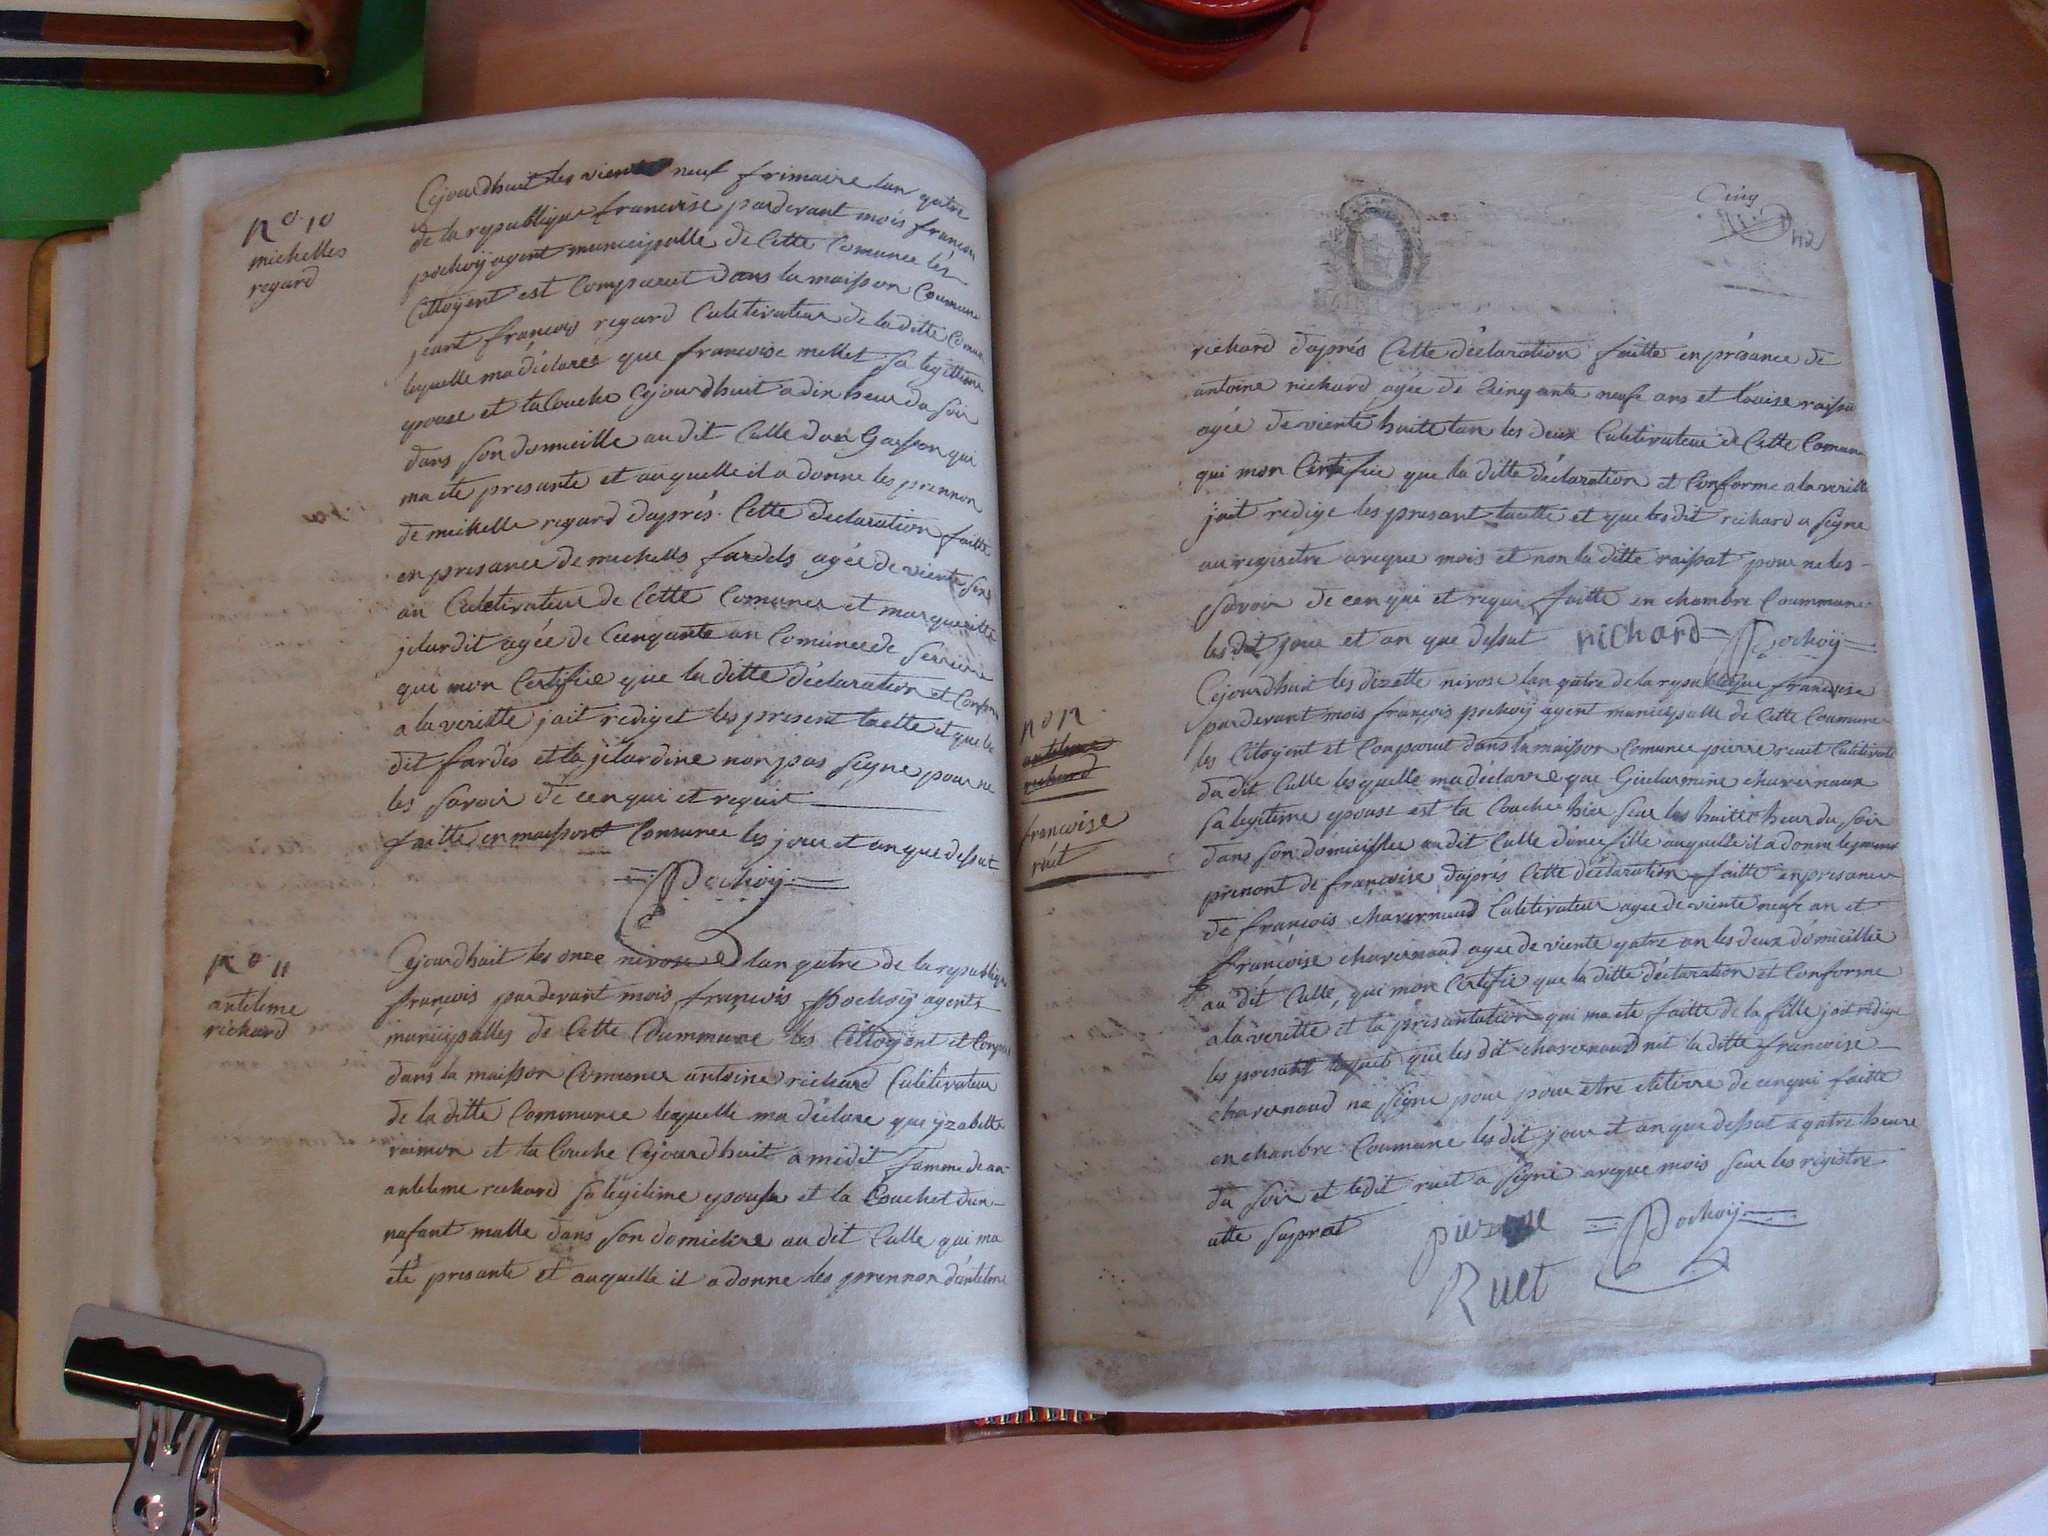 N° 10
michelles
regard
Cejourdhuit les vient neuf frimaire lan qatre
de la republique francoise pardevant mois francois
pochoÿ agent municipalle de Cette Comunee les
Cittoÿent est Comparut dans la maisson Coumune
jeant francois regard Culetivateur de la ditte Comune
lequelle ma déclarez que francoise mellet sa legittime
epouse et ta Couche Cejourdhuit a dix heur du soir
dans son domicille au dit Culle dun Gasson qui
ma ete presante et auquelle il a donne les prennon
de michelle regard daprés Cette declaration faitte
en presance de michelle fardels agée de viente
an Culetivateur de Cette Comunee et margueritte
jilardit agée de Cinqante an Comunee de
qui mon Certifie que la ditte déclaration et Conforme
a la veritte jait rediget les present lactte et que le
dit fardés et la jilardine non pas signe pour ne
les savoir de cenqui et requis
faitte en maissont Comunee les jour et an que dessut
Pochoÿ
N° 11
antelme
richard
Cejourdhuit les onze nivose lan qatre de la republique
françois pardevant mois françois Pochoÿ agent
municipalles de Cette Coummune les Cittoyent et Comparut
dans la maisson Comunee antoine richard Culetivateur
de la ditte Communee lequelle ma déclare que yzabelle
raimon et ta Couche Cejourdhuit a midit famme de an
antelme richard sa legitime epouse et la Couchet dun
nafant malle dans son domicilre au dit Culle qui ma
été presante et auquelle il a donne les prennon dantelme
Cinq
richard daprés Cette déclaration faitte en présance de
antoine richard agée de Cinqante neufe ans et louise raissat
agée de viente huite tan les deux Culetivateur de Cette Comune
qui mon Certifie que la ditte déclaration et Conforme a la veritte
jait redige les presant lactte et que les dit richard a signe
au regisetre aveque mois et non la ditte raissat pour ne les
savoir de cen qui et requi faitte en chambre Coummune
les dit jour et an que dessut richard Pochoÿ
N° 12
antelme
richard
francoise
ruet
Cejourdhuit les dizette nivose lan qatre de la republique francoise
pardevant mois françois pochoÿ agent municipalle de Cette Coumune
les Citoyent et Comparut dans la maisson Comunee pierre ruet Culetivate
du dit Culle lesquelle ma déclarre que Guilarmine chavernaux
sa legitime epouse est ta Couchee hier seur les huitte heur du soir
dans son domicille au dit Culle dunee fille auquelle il a donne
prenont de francoise daprés Cette déclaration faitte en presance
de françois chavernaud Culetivateur agée de viente neufe an et
françoise chavernaud agee de viente qatre an les deux domicillie
au dit Culle qui mon Certifie que la ditte déclaration et Conforme
a la veritte et la présantation qui ma ete faitte de la fille jait redige
les presant laquit que les dit chavernaud nit la ditte francoise
chavernaud na signe pour pour etre eletirre de cenqui faitte
en chanbre Coumune les dit jour et an que dessut a qatre heure
du soir et ledit ruet a signe aveque mois seur les registre
utte suprat pierre Pochoÿ
Ruet